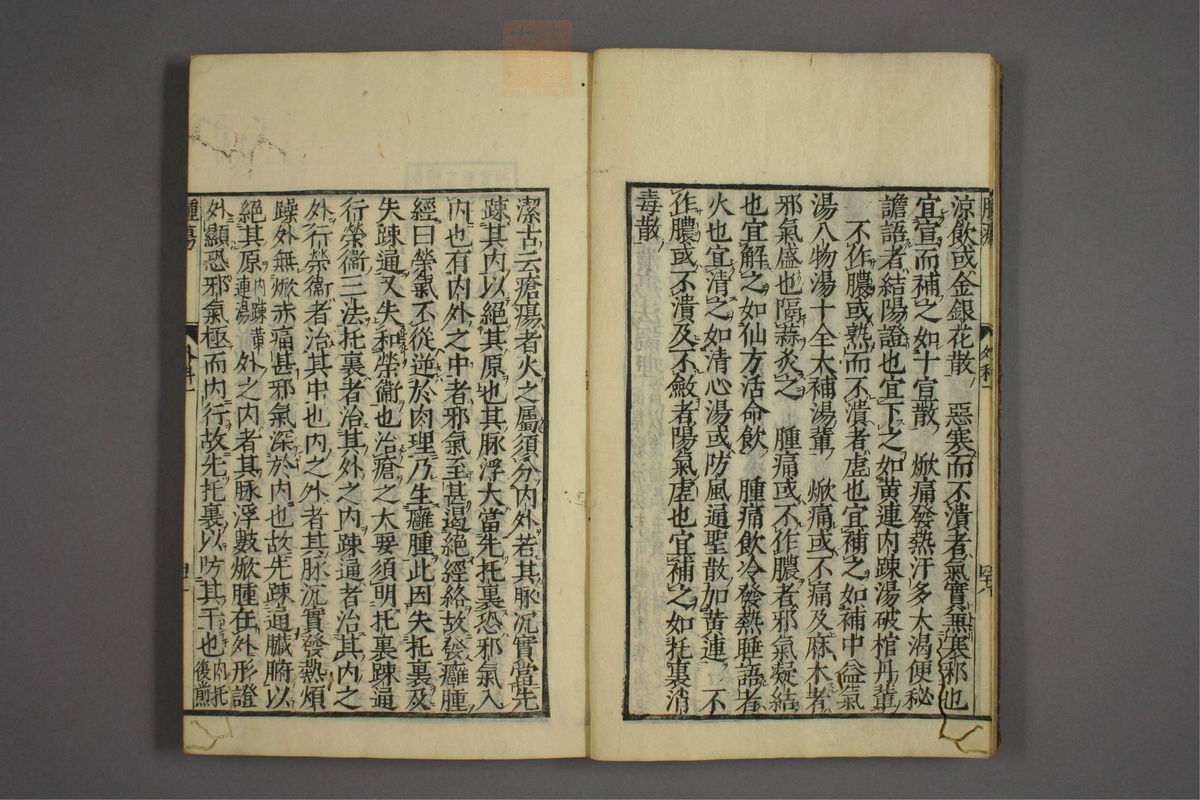 涼飲或金銀花散 惡寒而不潰者氣實無寒邪也
宜宣而補之如十宣散 焮痛發熱汗多大渴便秘
譫語者結陽證也宜下之如黃連內踈湯破棺丹軰
不作膿或熟而不潰者虛也宜補之如補中益氣
湯八物湯十全大補湯軰 焮痛或不痛及麻木者
邪氣盛也隔蒜炙之 腫痛或不作膿者邪氣凝結
也宜解之如仙方活命飲 腫痛飲冷發熱睡語者
火也宜清之如清心湯或防風通聖散加黃連 不
作膿或不潰及不斂者陽氣虛也宜補之如托裏消
毒散
潔古云瘡瘍者火之屬須分內外若其脉沉實當先
踈其內以絕其原也其脉浮大當先托裏恐邪氣入
內也有內外之中者邪氣至甚遏絕經絡故發癰腫
經曰榮氣不從逆於肉理乃生癰腫此因失托裏及
失踈通又失和榮衞也治瘡之大要須明托裏踈通
行榮衞三法托裏者治其外之內踈通者治其內之
外行榮衞者治其中也內之外者其脉沉實發熱煩
躁外無焮赤痛甚邪氣深於內也故先踈通臟腑以
絕其原內踈黃連湯外之內者其脉浮數焮腫在外形證
外顯恐邪氣極而內行故先托裏以防其干也內托後煎
腫瘍
外科一